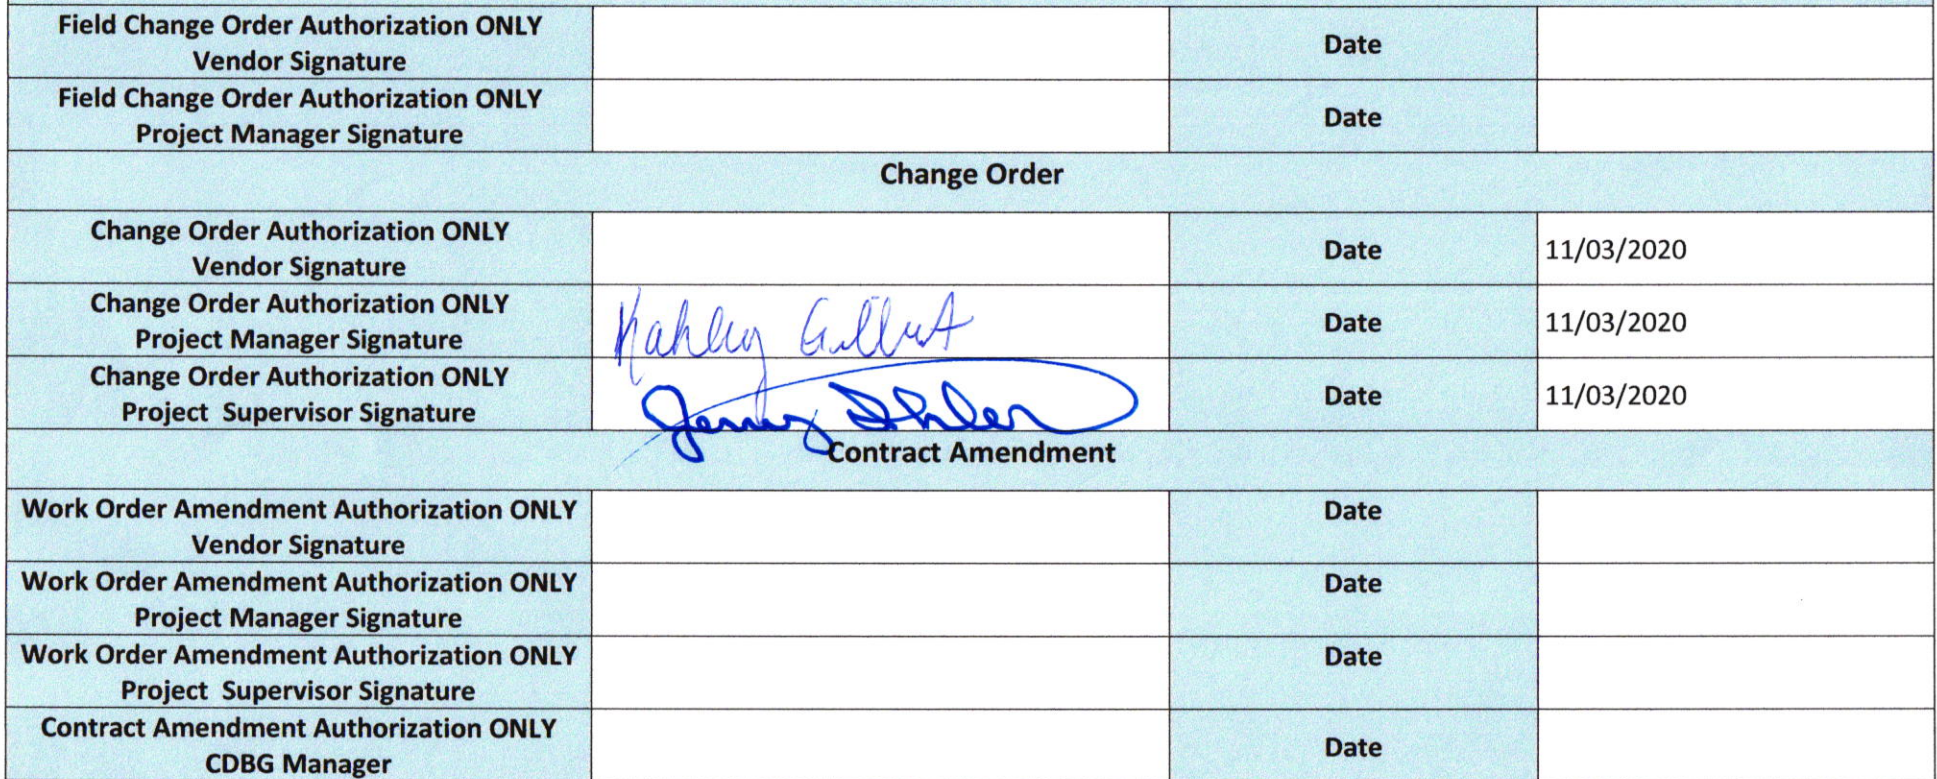 Field Change Order Authorization ONLY
Vendor Signature
Date
Field Change Order Authorization ONLY
Project Manager Signature
Date
Change Order
Change Order Authorization ONLY
Vendor Signature
Date
11/03/2020
Change Order Authorization ONLY
Project Manager Signature
Date
11/03/2020
Change Order Authorization ONLY
Project Supervisor Signature
Date
11/03/2020
Contract Amendment
Work Order Amendment Authorization ONLY
Vendor Signature
Date
Work Order Amendment Authorization ONLY
Project Manager Signature
Date
Work Order Amendment Authorization ONLY
Project Supervisor Signature
Date
Contract Amendment Authorization ONLY
CDBG Manager
Date